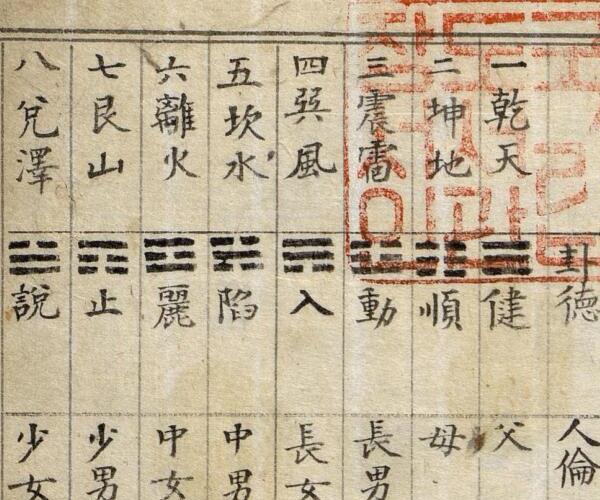 卦德 人倫
一乾天 健 父
二坤地 順 母
三震雷 動 長男
四巽風 入 長女
五坎水 陷 中男
六離火 麗 中女
七艮山 止 少男
八兌澤 說 少女